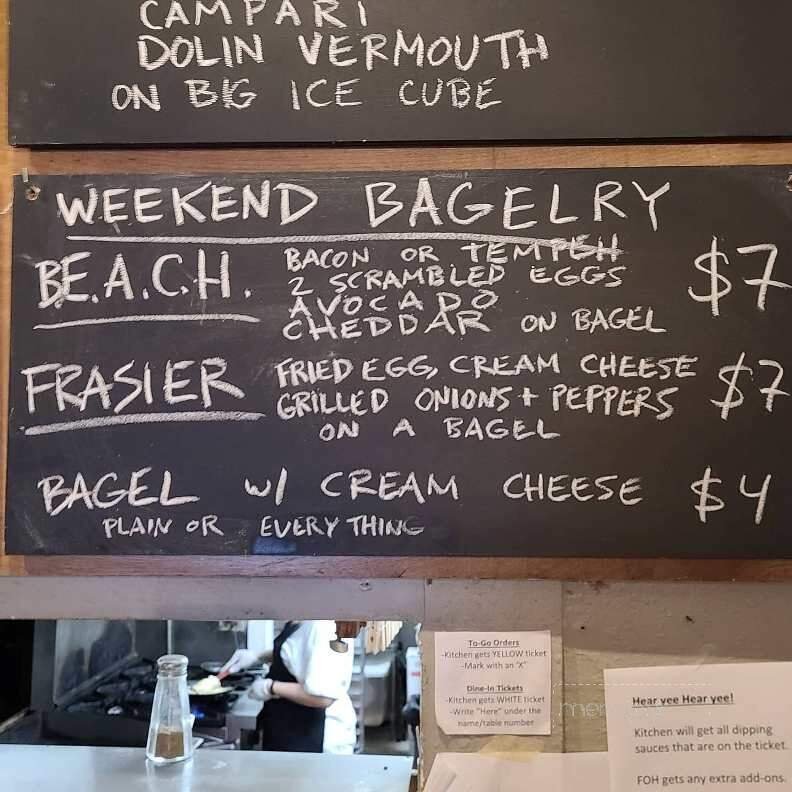 CAMPARI
DOLIN VERMOUTH
ON BIG ICE CUBE
WEEKEND BAGELRY
BE.A.C.H. BACON OR TEMPEH $7
2 SCRAMBLED EGGS
AVOCADO
CHEDDAR ON BAGEL
FRASIER FRIED EGG, CREAM CHEESE $7
GRILLED ONIONS + PEPPERS
ON A BAGEL
BAGEL W/ CREAM CHEESE $4
PLAIN OR EVERYTHING
To-Go Orders
-Kitchen gets YELLOW ticket
-Mark with an "X"
Dine-In Tickets
-Kitchen gets WHITE ticket
-Write "Here" under the
name/table number
Hear yee Hear yee!
Kitchen will get all dipping
sauces that are on the ticket.
FOH gets any extra add-ons.